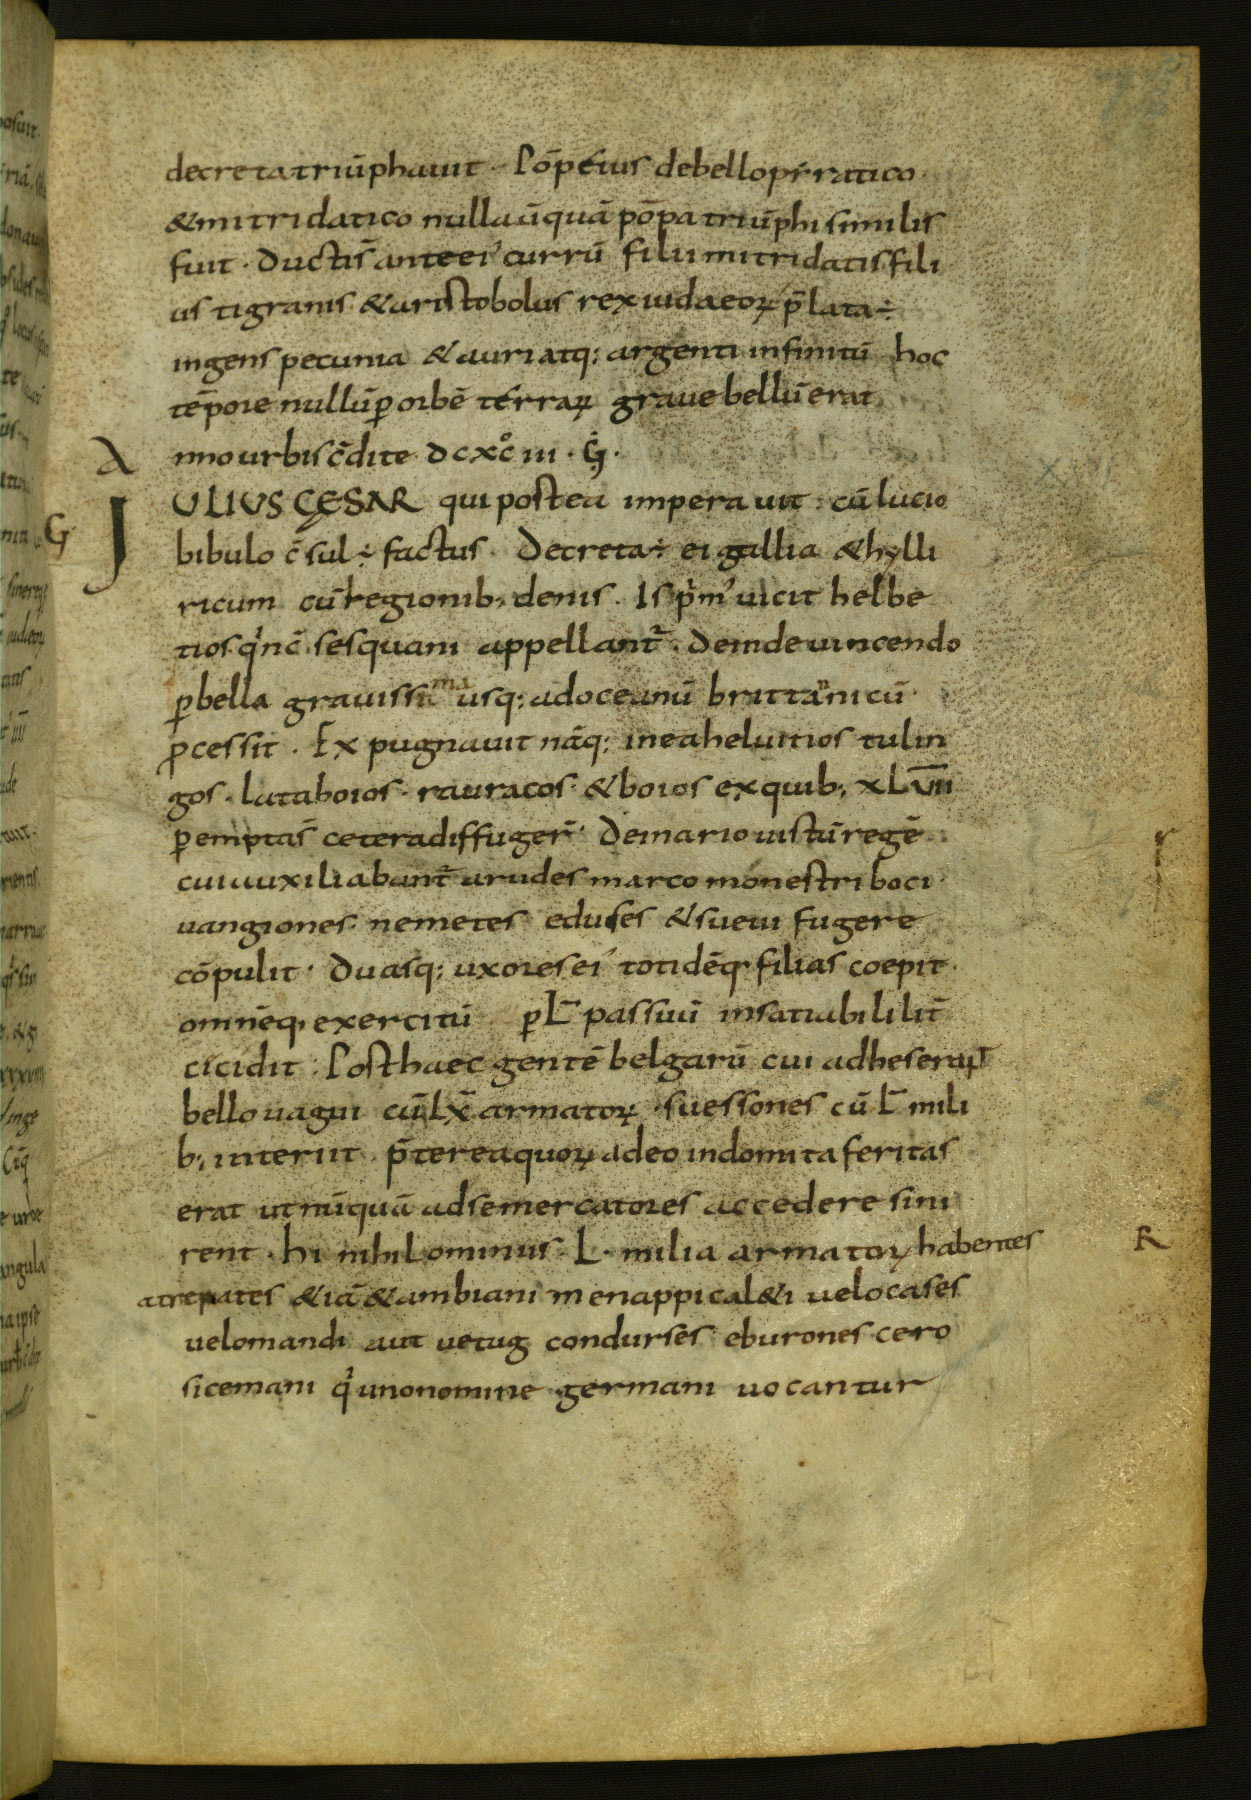 decreta triūphauit · Pōpeius de bello pirratico
& mitridatico nulla ūquā pōpa triūphi similis
fuit · Ductis̄ ante ei currū filii mitridatis fili
us tigranis & aristobolus rex iudaeoꝝ p̄lata ÷
ingens pecunia & auri atq; argenti infinitū hoc
tēpore nullū ꝑ orbē terraꝝ graue bellū erat
A nno urbis c̄dite DCXC̊III · G ·
J ULIUS CĘSAR qui postea imperauit cū lucio
G
bibulo c̄sul ÷ factus · Decreta ÷ ei gallia & hylli
ricum cū regionib; denis . Is p̓m' uicit helbe
tios q̓ nc̄ sesquani appellant̃ · deinde uincendo
ꝑ bella grauissima usq; ad oceanū brittannicū
ꝓcessit . Expugnauit nāq; in ea heluitios tulin
gos · lataboios · rauracos · & boios ex quib; XLVII
ꝑemptas̄ cetera diffuger̄ · Deinario uistū regē
cui auxiliabant̃ arudes marcomonestri boci ·
uangiones · nemetes eduses & sueui fugere
cōpulit · Duasq; uxores ei totidēq; filias coepit ·
omnēq; exercitū ꝑ L passiuū insatiabililit̄
cicidit · Post haec gentē belgarū cui adheserunt
bellouagui cū LX̄ armatoꝝ · suessones cū L̄ mili
b; interiit p̄terea quoꝝ adeo indomita feritas
erat ut nūquā ad se mercatores accedere sini
rent · hi nihilominus · L · milia armatoꝝ habentes
R
atrepates & iā & ambiani menappi cal&i uelocases
uelomandi aut uetug condurses eburones cero
sicemani q̓ uno nomine germani uocantur